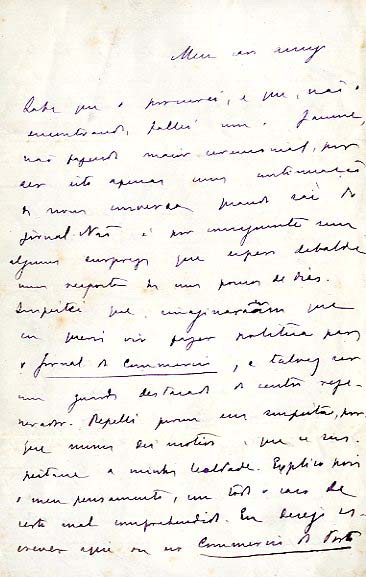 Meu caro amigo
Sabe que o procurei, e que, não o
encontrando, fallei com o Jayme,
não fazendo maior cerimonial, por
ser isto apenas uma continuação
da nossa conversa quando saí do
Jornal. Não é por conseguinte sem
alguma surpreza que espero debalde
uma resposta ha uns poucos de dias.
Suspeitei que imaginaram que
eu queria vir fazer politica para
o Jornal do Commercio, e talvez ser
um guarda destacado do centro rege-
nerador. Repelli porem essa suspeita, por
que nunca dei motivo a que se sus-
peitasse a minha lealdade. Explico pois
o meu pensamento, em todo o caso de
certo mal comprehendido. Eu desejo es-
crever aqui ou no Commercio do Porto